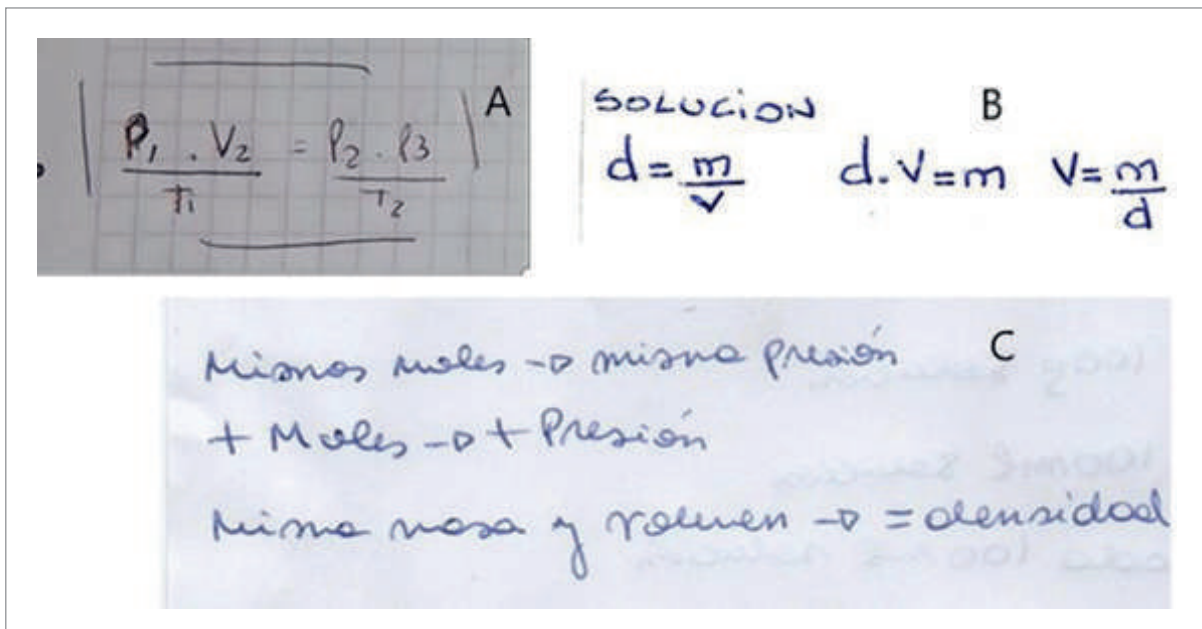 A
P₁ . V₂ = P₂ . P3
T₁ T₂
B
SOLUCION
d = m/v d.V=m V= m/d
C
Mismos moles → misma presión
+ Moles → + Presión
Misma masa y volumen → = densidad